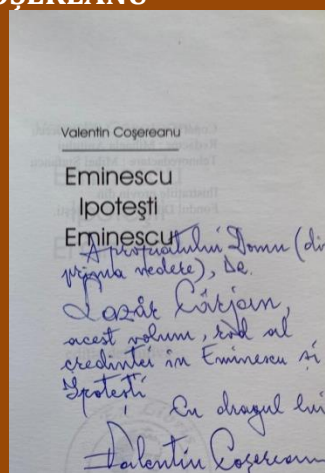 OȘEREANU
Valentin Coșereanu
Eminescu
Ipotești
Eminescu
Apropiatului Domn (din
prima vedere), De.
Lazăr Cârjan,
acest volum, rod al
credintei în Eminescu si
Ipotesti
Cu dragul lui
Valentin Coșereanu